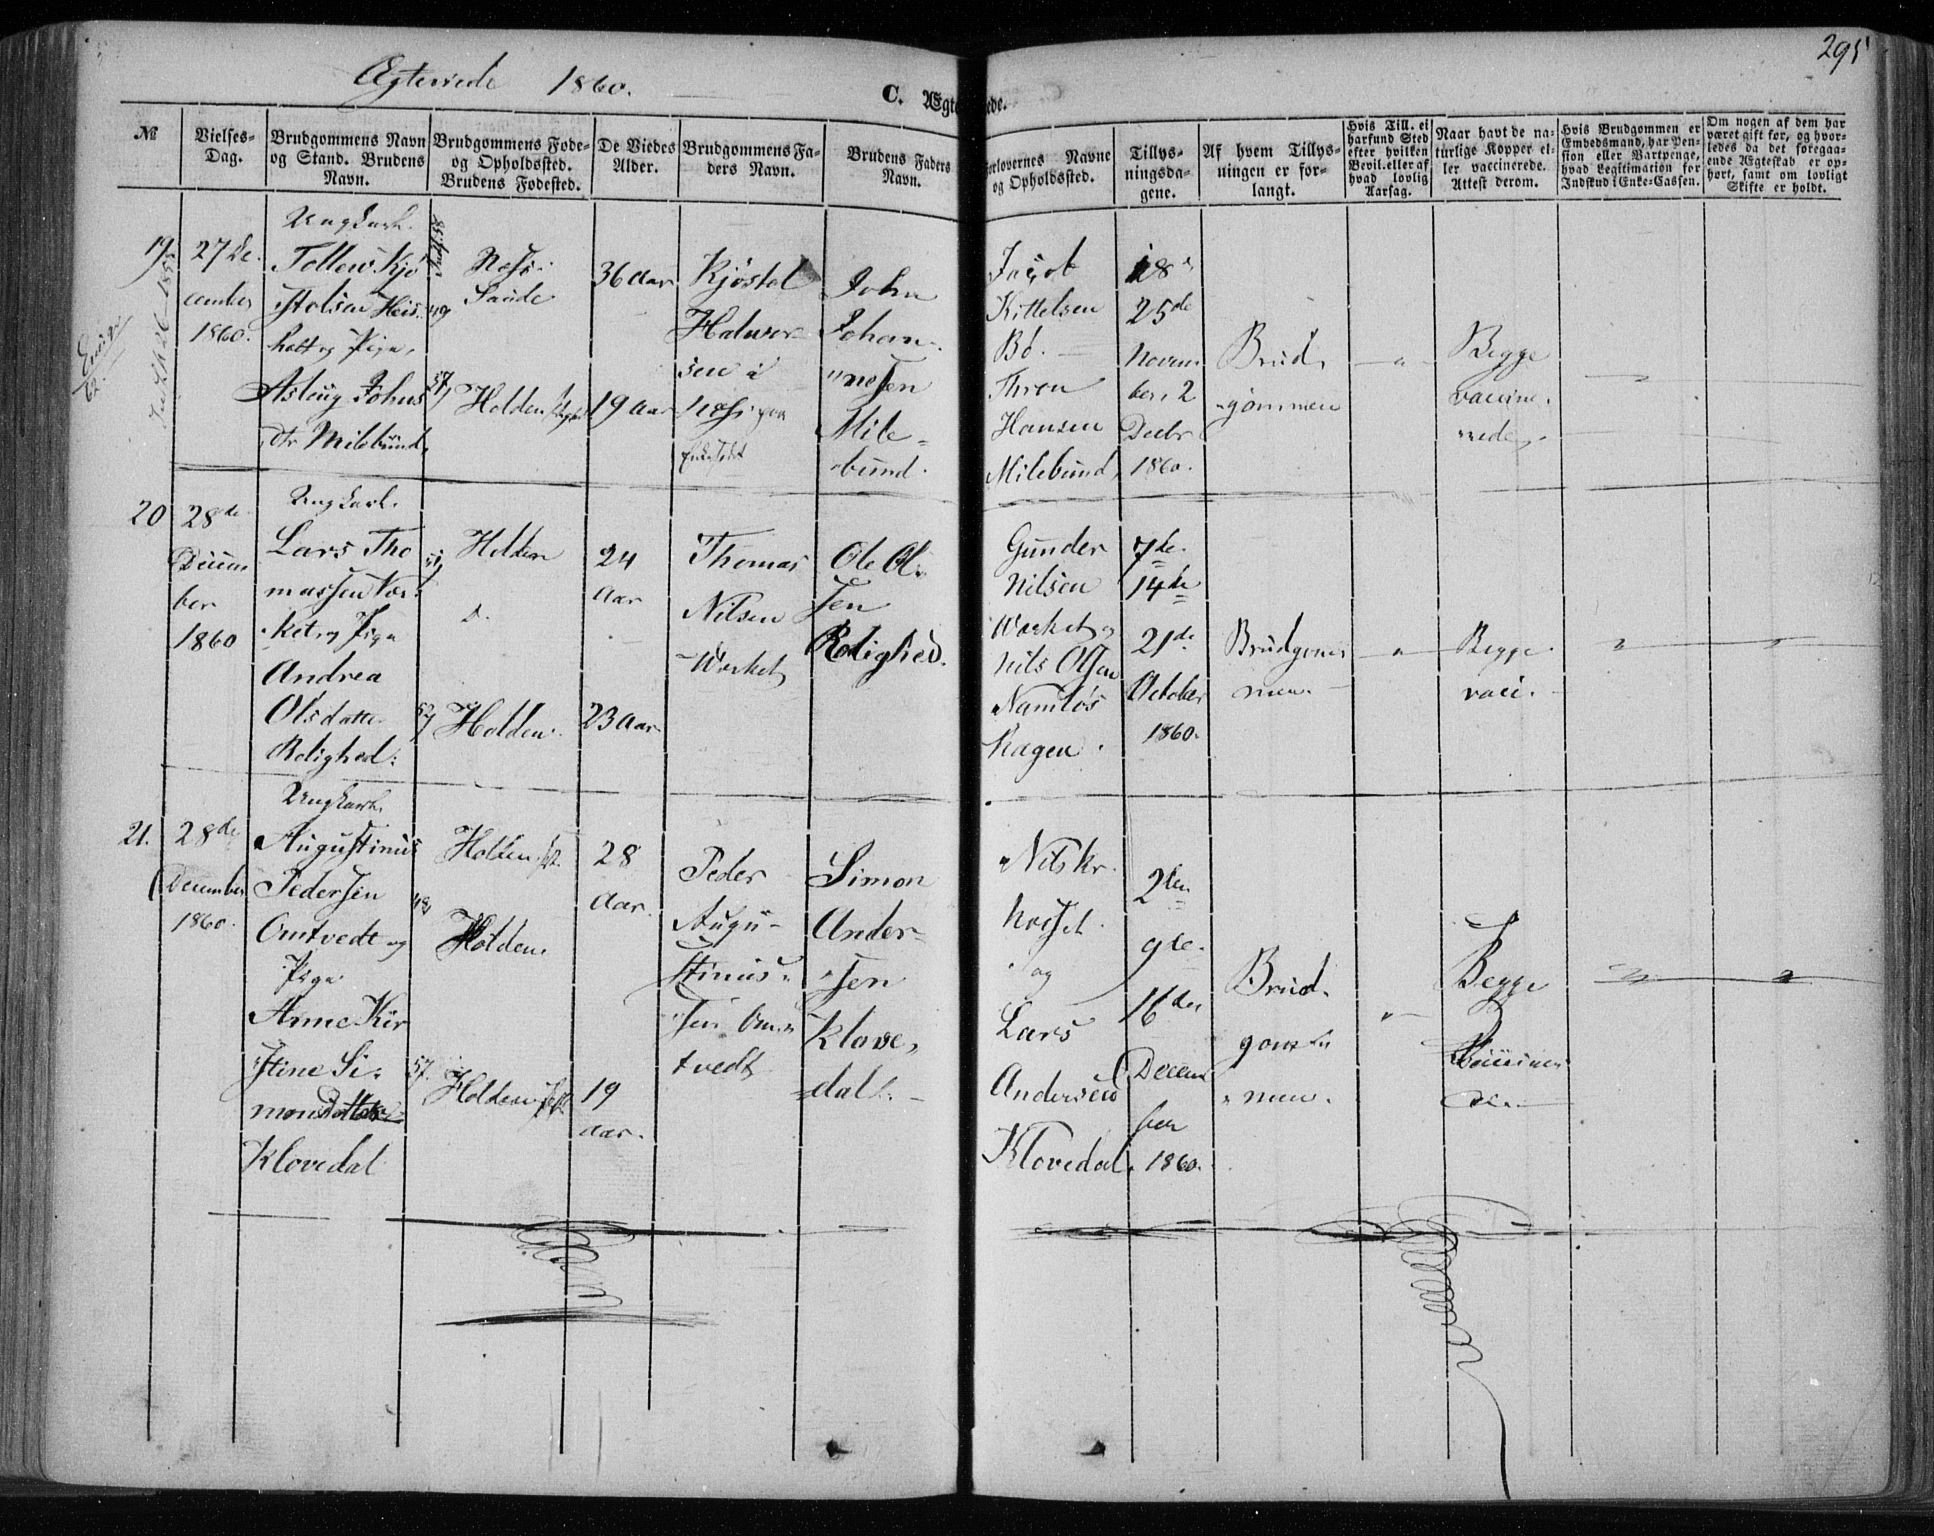 Ægteviede 1860.
295
C. Ægte
ede.
№
Vielses-
Dag.
Brudgommens Navn
og Stand. Brudens
Navn.
Brudgommens Føde-
og Opholdssted.
Brudens Fødested.
De Viedes
Alder.
Brudgommens Fa-
ders Navn.
Brudens Faders
Navn.
orlovernes Navne
og Opholdssted.
Tillys-
ningsda-
gene.
Af hvem Tillys-
ningen er for-
langt.
Hvis Till. ei
harfund Sted
efter hvilken
Bevil. eller af
hvad lovlig
Aarsag.
Naar havt de na-
turlige Kopper el-
ler vaccinerede.
Attest derom.
Hvis Brudgommen er
Embedsmand, har Pen-
sion eller Vartpenge,
hvad Legitimation for
Indskud i Enke-Cassen.
Om nogen af dem har
været gift før, og hvor-
ledes da det foregaa-
ende Ægteskab er op-
hørt, samt om lovligt
Skifte er holdt.
19.
27de
ember
1860.
Ungkarl.
Tollev Kjø
stolsen Heis
holt og Pige,
Aslaug Johns
dtr Milebund,
Næs
Saude
Holden
36 aar
19 aar
Kjøstol
Halvor
sen
John
Johan-
nesen
Mile-
bund.
Jacob
Kittelsen
Bø.
Thron
Hansen
Milebund,
18
25de
Novem
ber, 2
Decbr
1860.
Brud
gommen
"
Begge
vaccine
rede
20
28de
Decem
ber
1860
Ungkarl.
Lars Tho
massen Vær
ket og Pige
Andrea
Olsdatter
Rolighed.
57
Holden
D.
52
Holden.
24
aar
23 aar
Thomas
Nilsen
Værket
Ole Ol-
sen
Rolighed.
Gunder
Nilsen
Værket og
Nils Olsen
Namløs
hagen.
7de
14de
21de
October
1860.
Brudgom
men
"
Begge
vacci.
"
"
21.
28de
December
1860.
Ungkarl.
Augustinus
Pedersen
Omtvedt og
Pige
Anne Kir
stine Si-
monsdatter
Klovedal
Holden
48
Holden
57.
Holden
28
aar.
19
aar.
Peder
Augu-
stinus-
sen Om
tvedt
Simon
Ander-
sen
Klove,
dal.
Nils Kr.
og
Lars
Andersen
Klovedal.
2den
9de
16de
Decem
ber
1860.
Brud
gom
men.
"
Begge
"
"